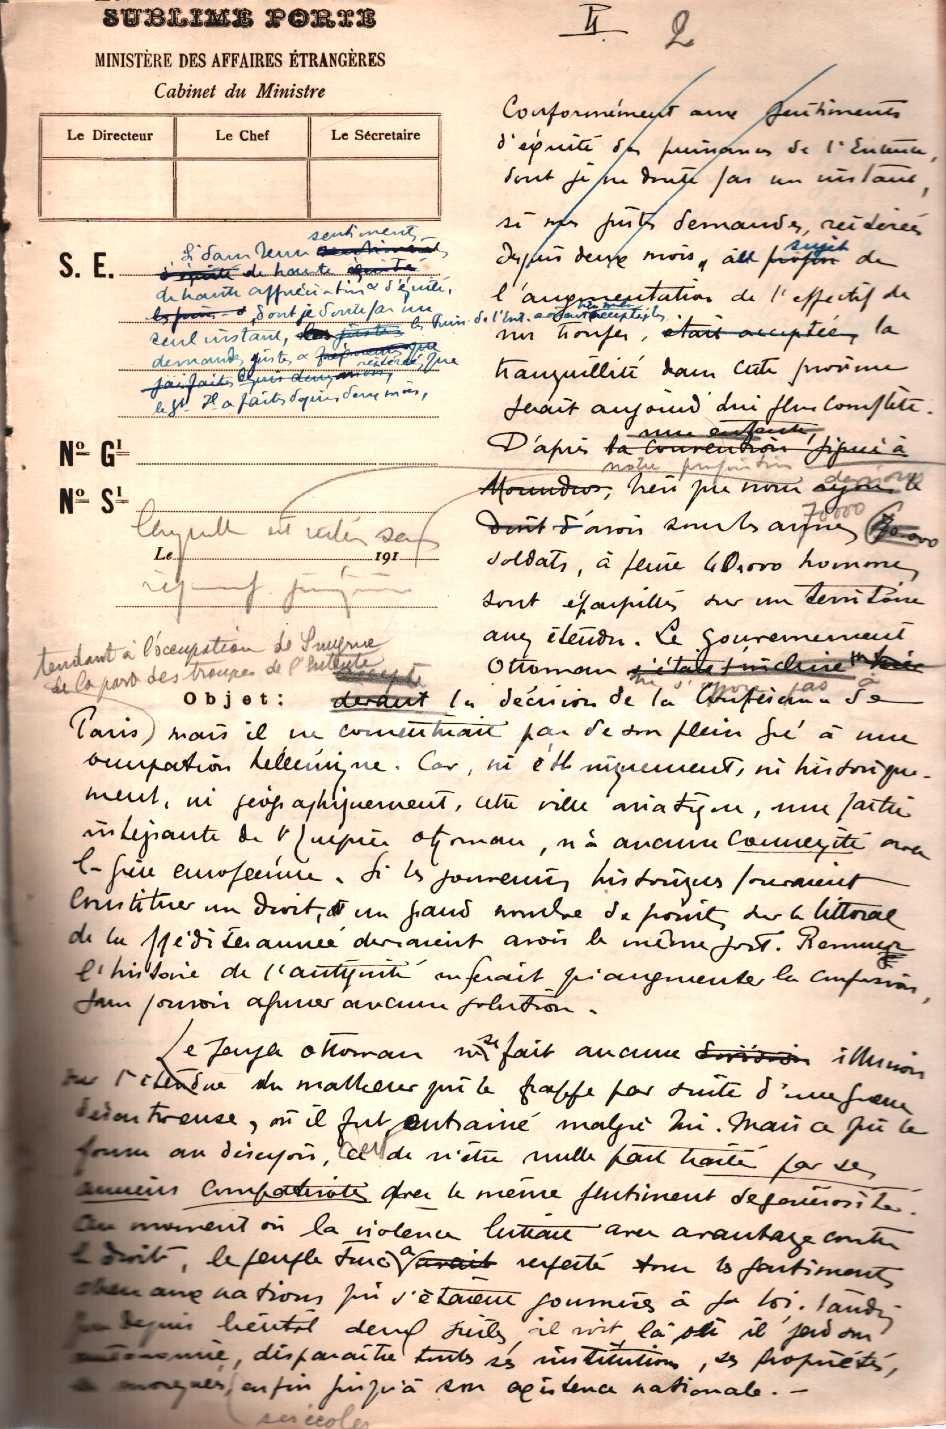 SUBLIME PORTE
MINISTÈRE DES AFFAIRES ÉTRANGÈRES
Cabinet du Ministre
Le Directeur
Le Chef
Le Sécretaire
II
2
Conformément aux sentiments
d'équité des puissances de l'Entente,
dont je ne doute pas un instant,
si mes justes demandes, réitérées
depuis deux mois, au sujet de
l'augmentation de l'effectif de
nos troupes, étaient acceptées, la
tranquillité dans cette province
serait aujourd'hui plus complète.
S. E.
sentiments
de haute appréciation & d'équité,
dont je doute pas un
seul instant, les
demandes justes &
que
le gt. Il a faites depuis deux mois,
D'après la convention signée à
notre
Moundros, bien que nous ayons le
devions
droit d'avoir sous les armes
70000
70.000
soldats, à peine 40.000 hommes
sont éparpillés sur un territoire
aussi étendu. Le Gouvernement
Ottoman
Nº Gl
Nº Sl
Le 191
tendant à l'occupation de Smyrne
de la part des troupes de l'Entente
Objet:
devant la décision de la Conférence de
Paris, mais il ne consentirait pas de son plein gré à une
occupation hellénique. Car, ni ethniquement, ni historique-
ment, ni géographiquement, cette ville asiatique, une partie
intégrante de l'Empire ottoman, n'a aucune connexité avec
la Grèce européenne. Si les souvenirs historiques pouvaient
constituer un droit, un grand nombre de points sur le littoral
de la Méditerannée devraient avoir le même sort. Remuer
l'histoire de l'antiquité ne ferait qu'augmenter la confusion,
sans pouvoir amener aucune solution.
Le peuple ottoman ne se fait aucune division illusion
sur l'étendue du malheur qui le frappe par suite d'une guerre
désastreuse, où il fut entrainé malgré lui. Mais ce qui le
au désespoir, c'est de n'être nulle part traité par ses
anciens compatriotes avec le même sentiment de générosité.
Au moment où la violence luttait avec avantage contre
le droit, le peuple turc a avait respecté tous les sentiments
chers aux nations qui s'étaient soumises à sa loi. Tandis
que depuis bientôt deux siècles, il voit, là où il perd son
autonomie, disparaître toutes ses institutions, ses propriétés,
ses mosquées, enfin jusqu'à son existence nationale. —
ses écoles